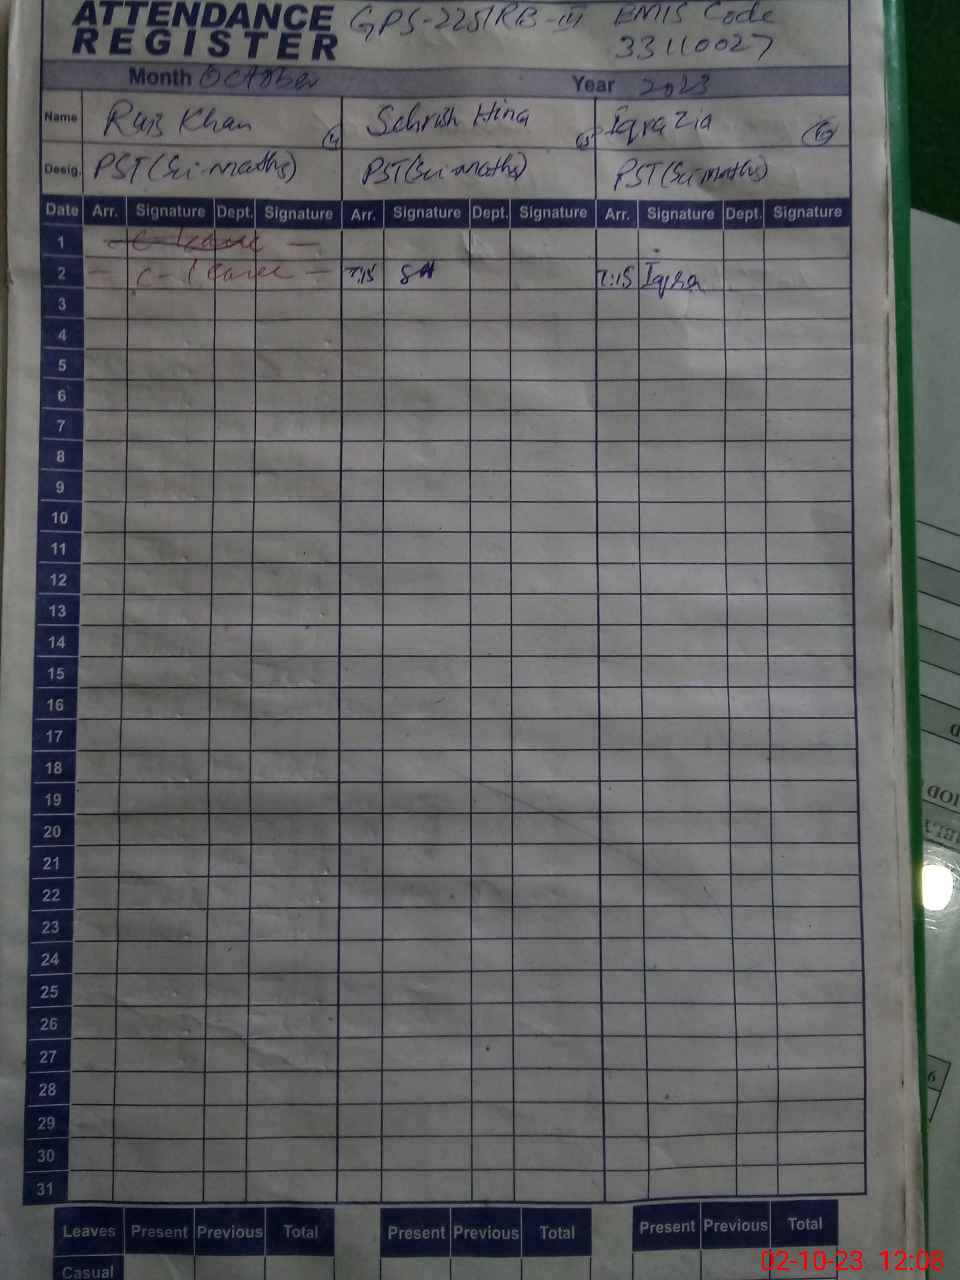 ATTENDANCE GPS-225/RB-III EMIS Code
REGISTER 33110027
Month October Year 2023
Name Khan Sehrish Hina Iqra Zia
Desig. PST(Sci-maths) PST(Sci-maths) PST(Sci maths)
Date Arr. Signature Dept. Signature Arr. Signature Dept. Signature Arr. Signature Dept. Signature
1 - c- leave -
2 - c- leave - 7:15 7:15 Iqra
3
4
5
6
7
8
9
10
11
12
13
14
15
16
17
18
19
20
21
22
23
24
25
26
27
28
29
30
31
Leaves Present Previous Total Present Previous Total Present Previous Total
Casual
02-10-23 12:08